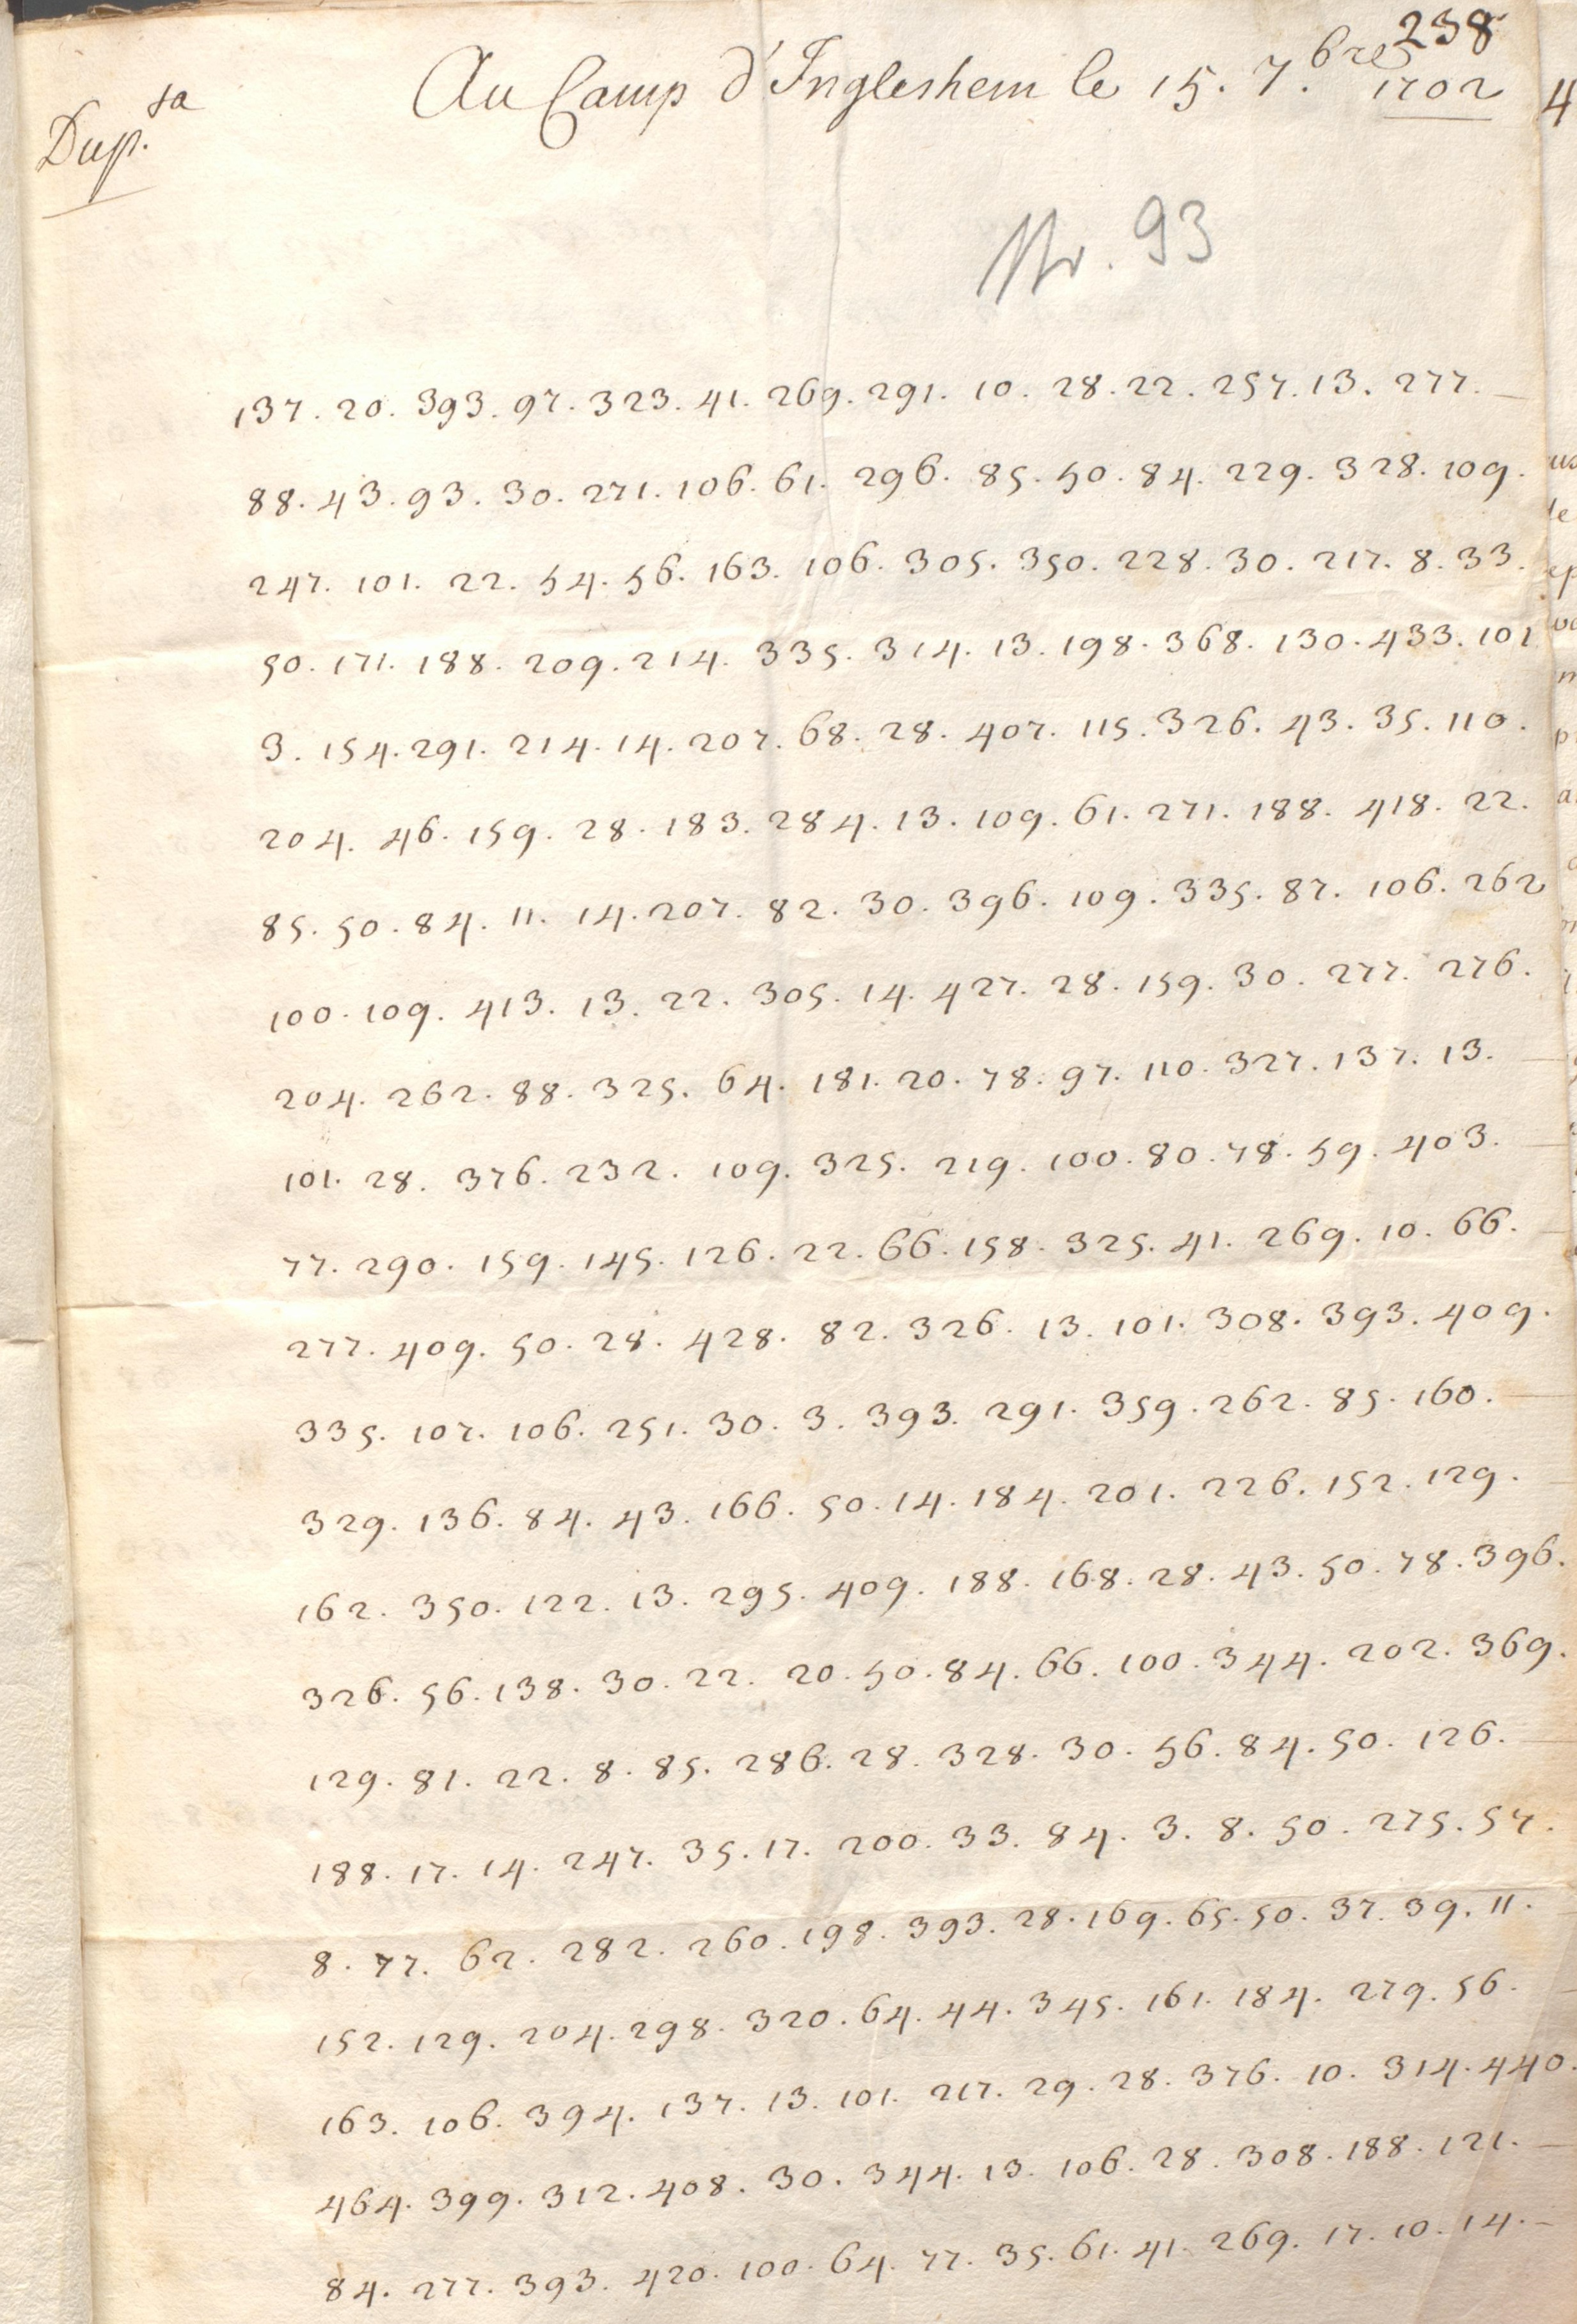 238
Au Camp d'Ingleshem le 15. 7.bre 1702
Dup.ta
Nr. 93
137. 20. 393. 97. 323. 41. 269. 291. 10. 28. 22. 257. 13. 277.
88. 43. 93. 30. 271. 106. 61. 296. 85. 50. 84. 229. 328. 109.
247. 101. 22. 54. 56. 163. 106. 305. 350. 228. 30. 217. 8. 33.
50. 171. 188. 209. 214. 335. 314. 13. 198. 368. 130. 433. 101
3. 154. 291. 214. 14. 207. 68. 28. 407. 115. 326. 43. 35. 110.
204. 46. 159. 28. 183. 284. 13. 109. 61. 271. 188. 418. 22.
85. 50. 84. 11. 14. 207. 82. 30. 396. 109. 335. 87. 106. 262
100. 109. 413. 13. 22. 305. 14. 427. 28. 159. 30. 277. 276.
204. 262. 88. 325. 64. 181. 20. 78. 97. 110. 327. 137. 13.
101. 28. 376. 232. 109. 325. 219. 100. 80. 78. 59. 403.
77. 290. 159. 145. 126. 22. 66. 158. 325. 41. 269. 10. 66.
277. 409. 50. 28. 428. 82. 326. 13. 101. 308. 393. 409.
335. 107. 106. 251. 30. 3. 393. 291. 359. 262. 85. 160.
329. 136. 84. 43. 166. 50. 14. 184. 201. 226. 152. 129.
162. 350. 122. 13. 295. 409. 188. 168. 28. 43. 50. 78. 396.
326. 56. 138. 30. 22. 20. 50. 84. 66. 100. 344. 202. 369.
129. 81. 22. 8. 85. 286. 28. 328. 30. 56. 84. 50. 126.
188. 17. 14. 247. 35. 17. 200. 33. 84. 3. 8. 50. 275. 57.
8. 77. 62. 282. 260. 198. 393. 28. 169. 65. 50. 37. 39. 11.
152. 129. 204. 298. 320. 64. 44. 345. 161. 184. 279. 56.
163. 106. 394. 137. 13. 101. 217. 29. 28. 376. 10. 314. 440.
464. 399. 312. 408. 30. 344. 13. 106. 28. 308. 188. 121.
84. 277. 393. 420. 100. 64. 77. 35. 61. 41. 269. 17. 10. 14.